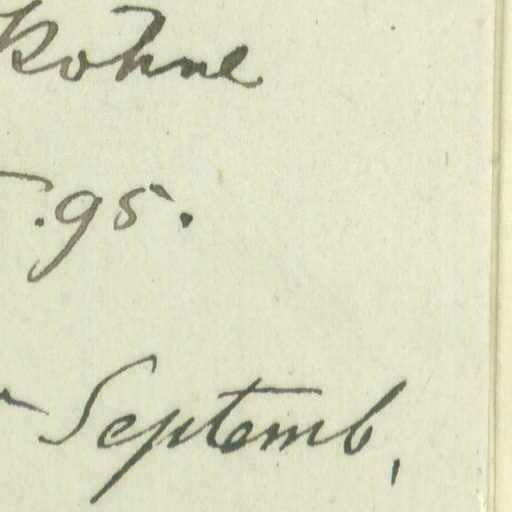 Kohne
.95.
Septemb,